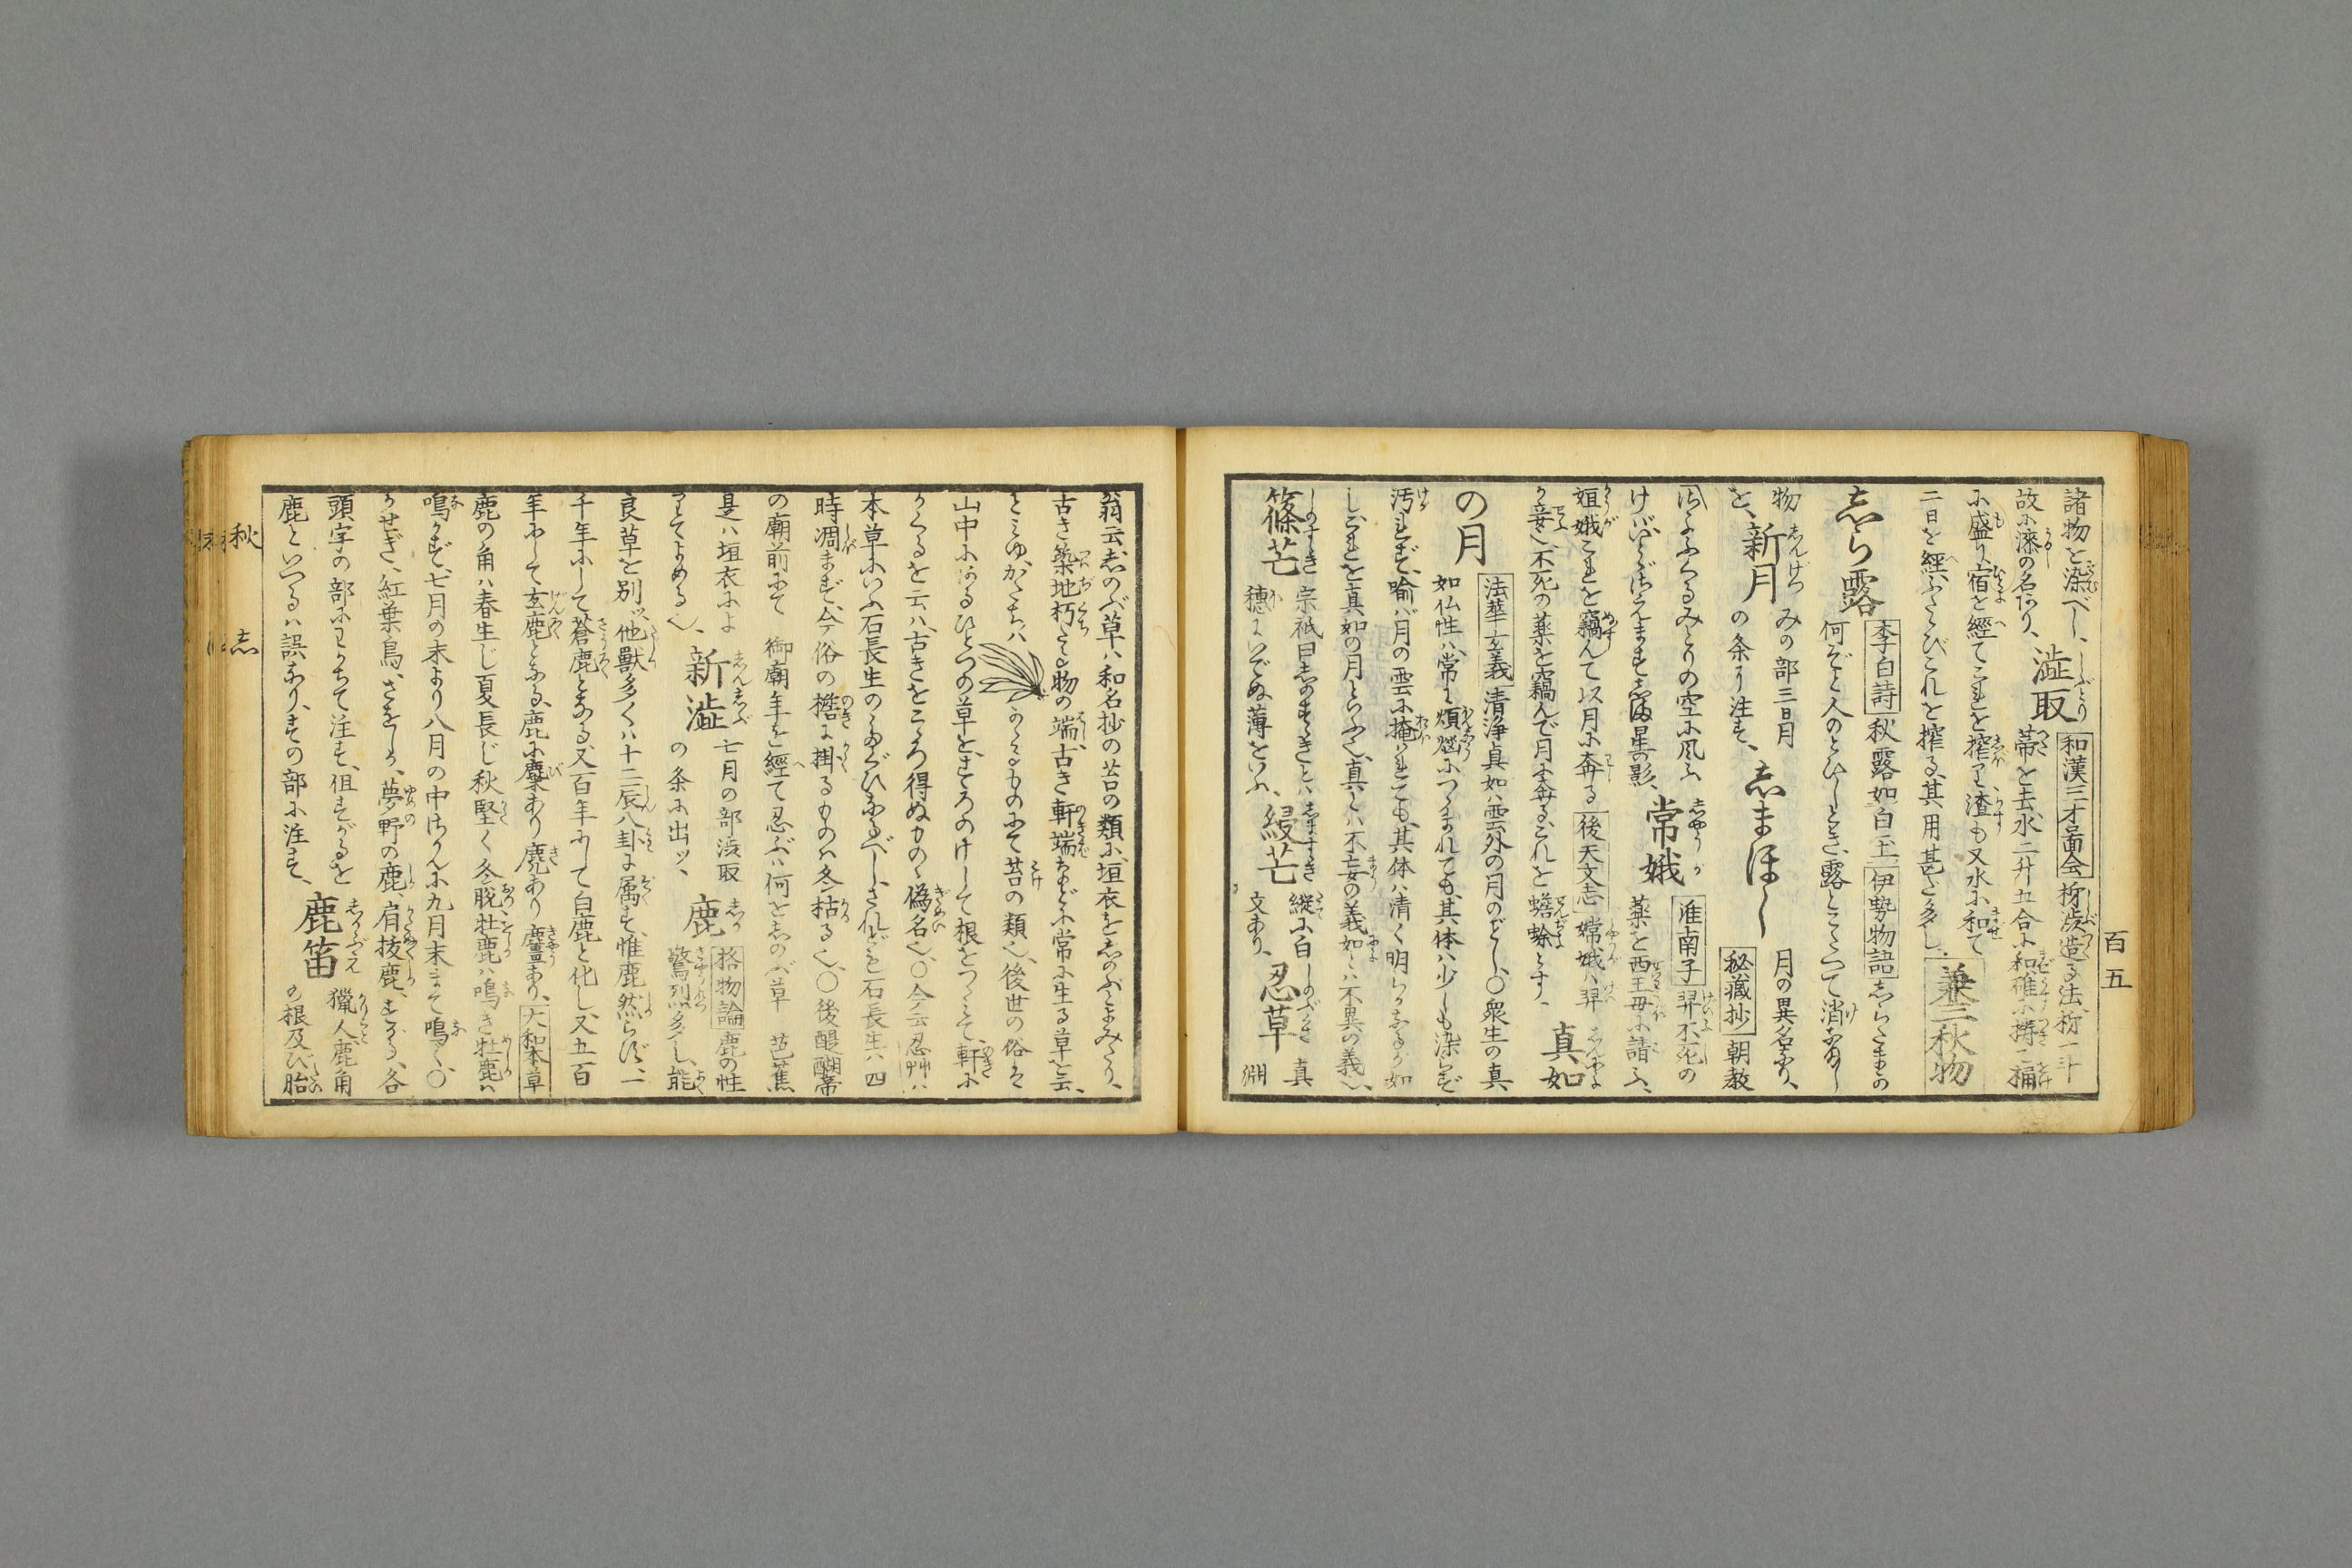 百五
諸物を染べし、澁取 和漢三才圖会 柹渋造る法柹一斗
故に漆の名あり、蒂を去水二升五合に和確に擣こ桶
に盛り宿を經てこれを搾り渣も又水に和て
二日を經ふたゝびこれを搾る其用甚だ多し 兼三秋物
しら露 李白詩 秋露如白玉 伊勢物語 しらたまの
何ぞと人のとひしとき露とこたへて消なまし
物 新月 みの部三日月の条に注す、しまほし 月の異名なり、
を、秘蔵抄 朝教
けバ 星の影、常娥 淮南子 羿不死の薬を西王母に請ふ、
姮娥これを竊んて以月に奔る 後天文志 嫦娥ハ羿
が妾也、不死の薬を竊んで月に奔るこれを蟾蜍とす、真如
の月 法華玄義 清浄真如ハ雲外の月のごとし、○衆生の真
如仏性ハ常に煩悩につゝまれても其体ハ少しも染らず
汚れず、喩バ月の雲に掩れても、其体ハ清く明らかなるが如
し、これを真如の月といふ也、真とハ不妄の義如とハ不異の義也、
篠芒 宗祇曰しのすゝきとハ穂にいでぬ薄をいふ、縵芒 縦に白文あり、忍草 真淵
翁云しのぶ草ハ和名抄の苔の類に、垣衣をしのぶとよみたり、
古き築地朽たる物の端、古き軒端などに常に生る草を云、
とミゆ、かたちハ かゝるものにて苔の類也、後世の俗ハ
山中にあるひとつの草を、きろのけして根をつゝミて、軒に
かくるを云ハ、古きをこゝろ得ぬものゝ偽名也、○今云忍艸ハ
本草にいふ石長生のたぐひなるべし、されども石長生ハ四
時凋まず、今俗の檐に掛るものハ冬枯る也、○後醍醐帝
の廟前にて 御廟年を經て忍ぶハ何をしのぶ草 芭蕉
是ハ垣衣によりてよめる也、新澁 七月の部渋取の条に出ツ、鹿 格物論 鹿の性驚烈多し、能
良草を別ツ、他獣多くハ十二辰八卦に属す、惟鹿然らず、一
千年にして蒼鹿となる、又百年にして白鹿と化し、又五百
年にして玄鹿となる、鹿に麋あり麂あり麠あり、大和本草
鹿の角ハ春生じ夏長じ秋堅く冬脱、牡鹿ハ鳴き牝鹿ハ
鳴かず、七月の末より八月の中さかんに九月末まて鳴く、○
かせぎ、紅葉鳥、さをしか、夢野の鹿、肩抜鹿、すがる、各
頭字の部にわかちて注す、但すがるを
鹿といへるハ誤なり、すの部に注す、鹿笛 猟人鹿角の根及び胎
秋
志